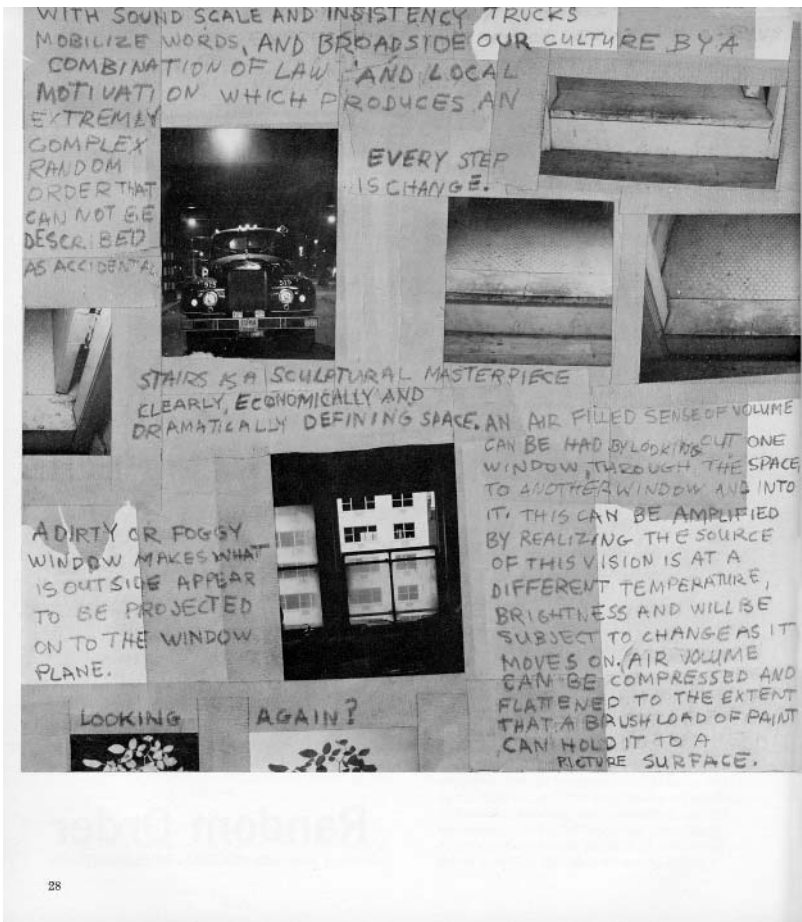 WITH SOUND SCALE AND INSISTENCY TRUCKS
MOBILIZE WORDS, AND BROADSIDE OUR CULTURE BY A
COMBINATION OF LAW AND LOCAL
MOTIVATION WHICH PRODUCES AN
EXTREMLY
COMPLEX
RANDOM
ORDER THAT
CAN NOT BE
DESCRIBED
AS ACCIDENTAL.
EVERY STEP
IS CHANGE.
STAIRS IS A SCULPTURAL MASTERPIECE
CLEARLY, ECONOMICALLY AND
DRAMATICALLY DEFINING SPACE.
AN AIR FILLED SENSE OF VOLUME
CAN BE HAD BY LOOKING OUT ONE
WINDOW, THROUGH THE SPACE
TO ANOTHER WINDOW AND INTO
IT. THIS CAN BE AMPLIFIED
BY REALIZING THE SOURCE
OF THIS VISION IS AT A
DIFFERENT TEMPERATURE,
BRIGHTNESS AND WILL BE
SUBJECT TO CHANGE AS IT
MOVES ON. (AIR VOLUME
CAN BE COMPRESSED AND
FLATTENED TO THE EXTENT
THAT A BRUSH LOAD OF PAINT
CAN HOLD IT TO A
PICTURE SURFACE.
A DIRTY OR FOGGY
WINDOW MAKES WHAT
IS OUTSIDE APPEAR
TO BE PROJECTED
ON TO THE WINDOW
PLANE.
LOOKING AGAIN?
Random Order
28